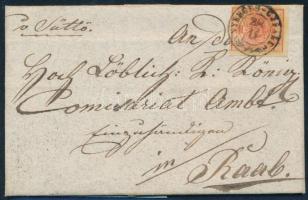 p. Süttö.
An das
Hoch Löblich: K: König
Comisariat Ambt.
Einzuhändigen
in
Raab.